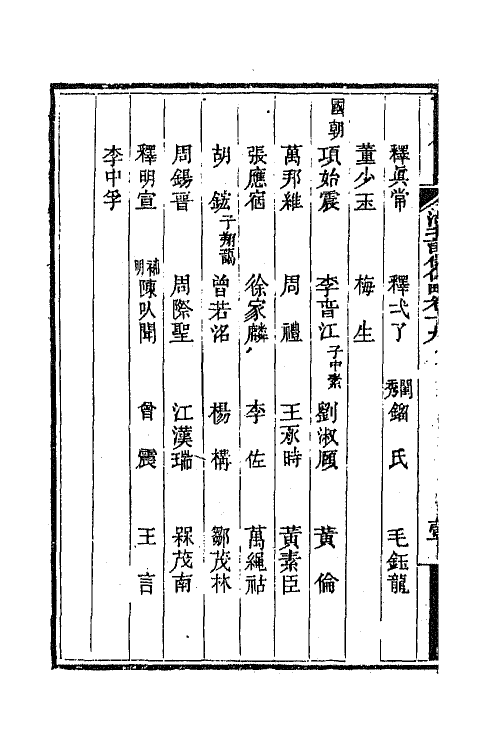 釋眞常 釋弍了 閨秀鎦氏 毛鈺龍
董少玉 梅生
國朝 項始震 李晋江子中素 劉淑頤 黃倫
萬邦維 周禮 王承時 黃素臣
張應宿 徐家麟 李佐 萬繩祜
胡 子翔鷮 曾若洺 楊構 鄒茂林
周錫晋 周際聖 江漢瑞 茂南
釋明宣 補明陳㕥聞 曾震 王言
李中孚